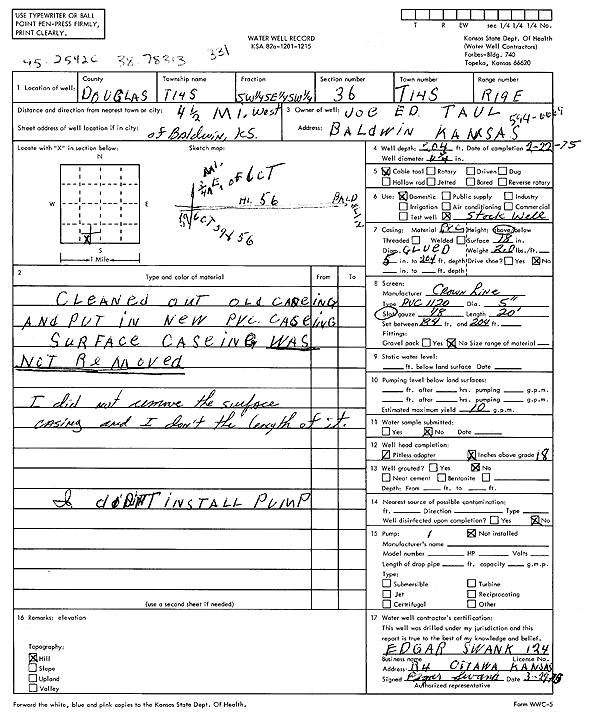 USE TYPEWRITER OR BALL
POINT PEN-PRESS FIRMLY,
PRINT CLEARLY.
WATER WELL RECORD
KSA 82a-1201-1215
T R EW sec 1/4 1/4 1/4 No.
Kansas State Dept. Of Health
(Water Well Contractors)
Forbes-Bldg. 740
Topeka, Kansas 66620
331
1 Location of well: County DOUGLAS Township name T14S Fraction SW1/4SE1/4SW1/4 Section number 36 Town number T14S Range number R19E
Distance and direction from nearest town or city: 4 1/2 MI, West
Street address of well location if in city: of Baldwin, KS.
3 Owner of well: JOE ED. TAUL
Address: BALDWIN KANSAS
Locate with "X" in section below:
N
W E
S
1 Mile
X
Sketch map:
of 6 CT
HI. 56
4 Well depth: 204 ft. Date of completion 2-22-75
Well diameter in.
5 X Cable tool Rotary Driven Dug
Hollow rod Jetted Bored Reverse rotary
6 Use: X Domestic Public supply Industry
Irrigation Air conditioning Commercial
Test well X Stock Well
7 Casing: Material PVC Height: Above/below
Threaded Welded Surface 18 in.
Diam. GLUED Weight lbs./ft.
5 in. to 204 ft. depth Drive shoe? Yes X No
in. to ft. depth
2 Type and color of material From To
CLEANED OUT OLD CASEING
AND PUT IN NEW PVC. CASEING
SURFACE CASEING WAS
NOT REMOVED
I did not remove the surface
casing and I don't the length of it.
I DIDNT INSTALL PUMP
(use a second sheet if needed)
8 Screen:
Manufacturer Crown Line
Type PVC 1120 Dia. 5"
Slot/gauze 18 Length 20'
Set between 184 ft. and 204 ft.
Fittings:
Gravel pack Yes X No Size range of material
9 Static water level:
ft. below land surface Date
10 Pumping level below land surfaces:
ft. after hrs. pumping g.p.m.
ft. after hrs. pumping g.p.m.
Estimated maximum yield 10 g.p.m.
11 Water sample submitted:
Yes X No Date
12 Well head completion:
Pitless adapter X Inches above grade 18
13 Well grouted? Yes X No
Neat cement Bentonite
Depth: From ft. to ft.
14 Nearest source of possible contamination:
ft. Direction Type
Well disinfected upon completion? Yes X No
15 Pump: X Not installed
Manufacturer's name
Model number HP Volts
Length of drop pipe ft. capacity g.m.p.
Type:
Submersible Turbine
Jet Reciprocating
Centrifugal Other
16 Remarks: elevation
Topography:
X Hill
Slope
Upland
Valley
17 Water well contractor's certification:
This well was drilled under my jurisdiction and this
report is true to the best of my knowledge and belief.
EDGAR SWANK 124
Business name License No.
Address R4 OTTAWA KANSAS
Signed Edgar Swank Date
Authorized representative
Forward the white, blue and pink copies to the Kansas State Dept. Of Health.
Form WWC-5